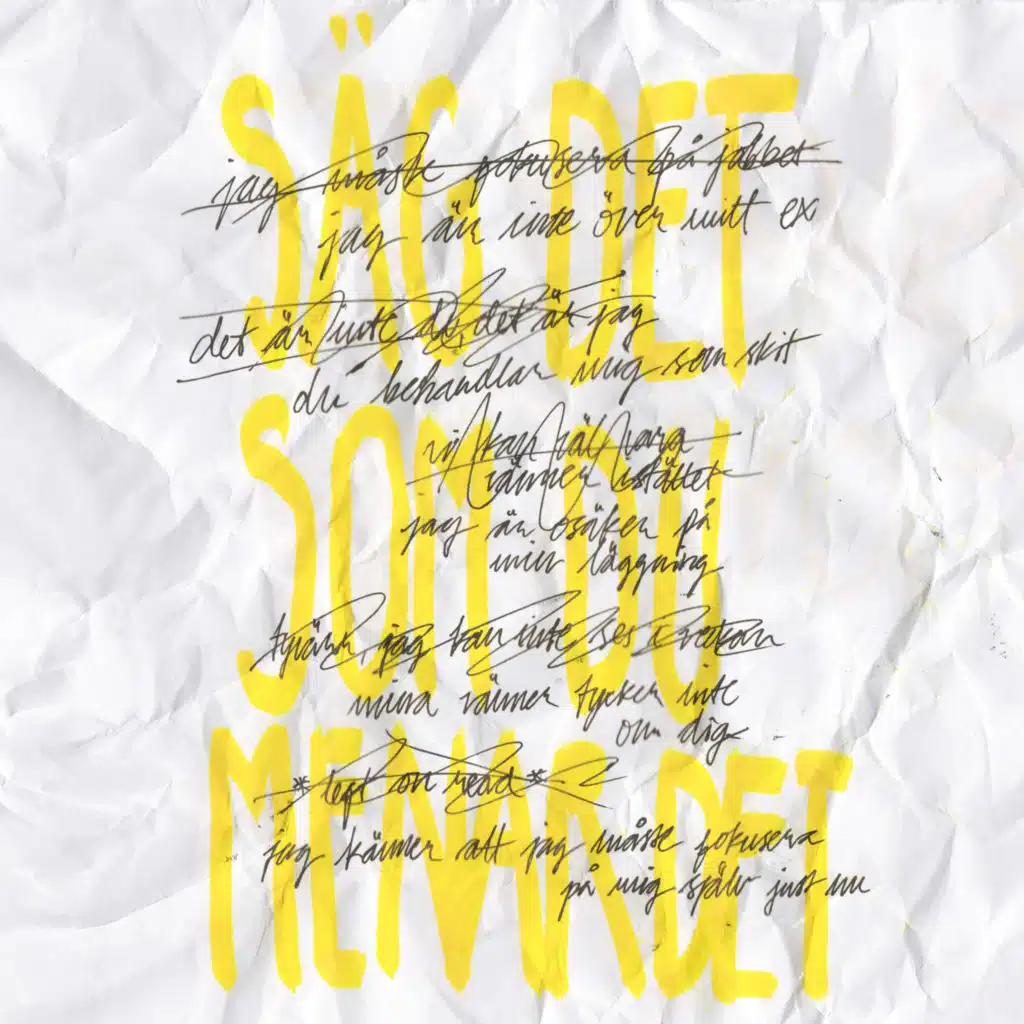 SÄG DET
SOM DU
MENAR DET
jag måste fokusera på jobbet
jag är inte över mitt ex
det är inte du, det är jag
du behandlar mig som skit
vi kan väl vara
vänner istället
jag är osäker på
min läggning
tyvärr, jag kan inte ses i veckan
mina vänner tycker inte
om dig
*left on read*
jag känner att jag måste fokusera
på mig själv just nu